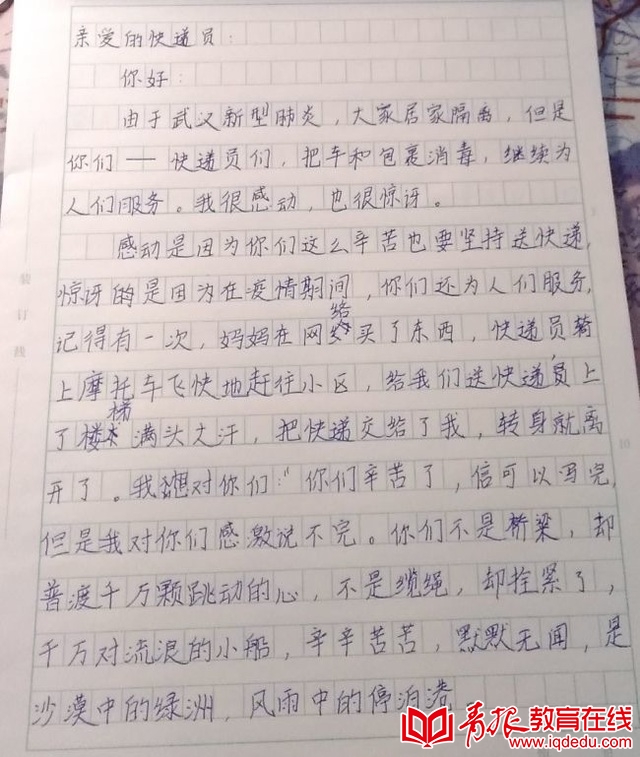 亲爱的快递员：
你好：
由于武汉新型肺炎，大家居家隔离，但是
你们——快递员们，把车和包裹消毒，继续为
人们服务。我很感动，也很惊讶。
感动是因为你们这么辛苦也要坚持送快递，
惊讶的是因为在疫情期间，你们还为人们服务，
记得有一次，妈妈在网络买了东西，快递员骑
上摩托车飞快地赶往小区，给我们送快递，员上
了楼梯满头大汗，把快递交给了我，转身就离
开了。我想对你们：“你们辛苦了，信可以写完，
但是我对你们感激说不完。你们不是桥梁，却
普渡千万颗跳动的心，不是缆绳，却拴紧了，
千万对流浪的小船，辛辛苦苦，默默无闻，是
沙漠中的绿洲，风雨中的停泊港
装订线
青报教育在线
www.iqdedu.com